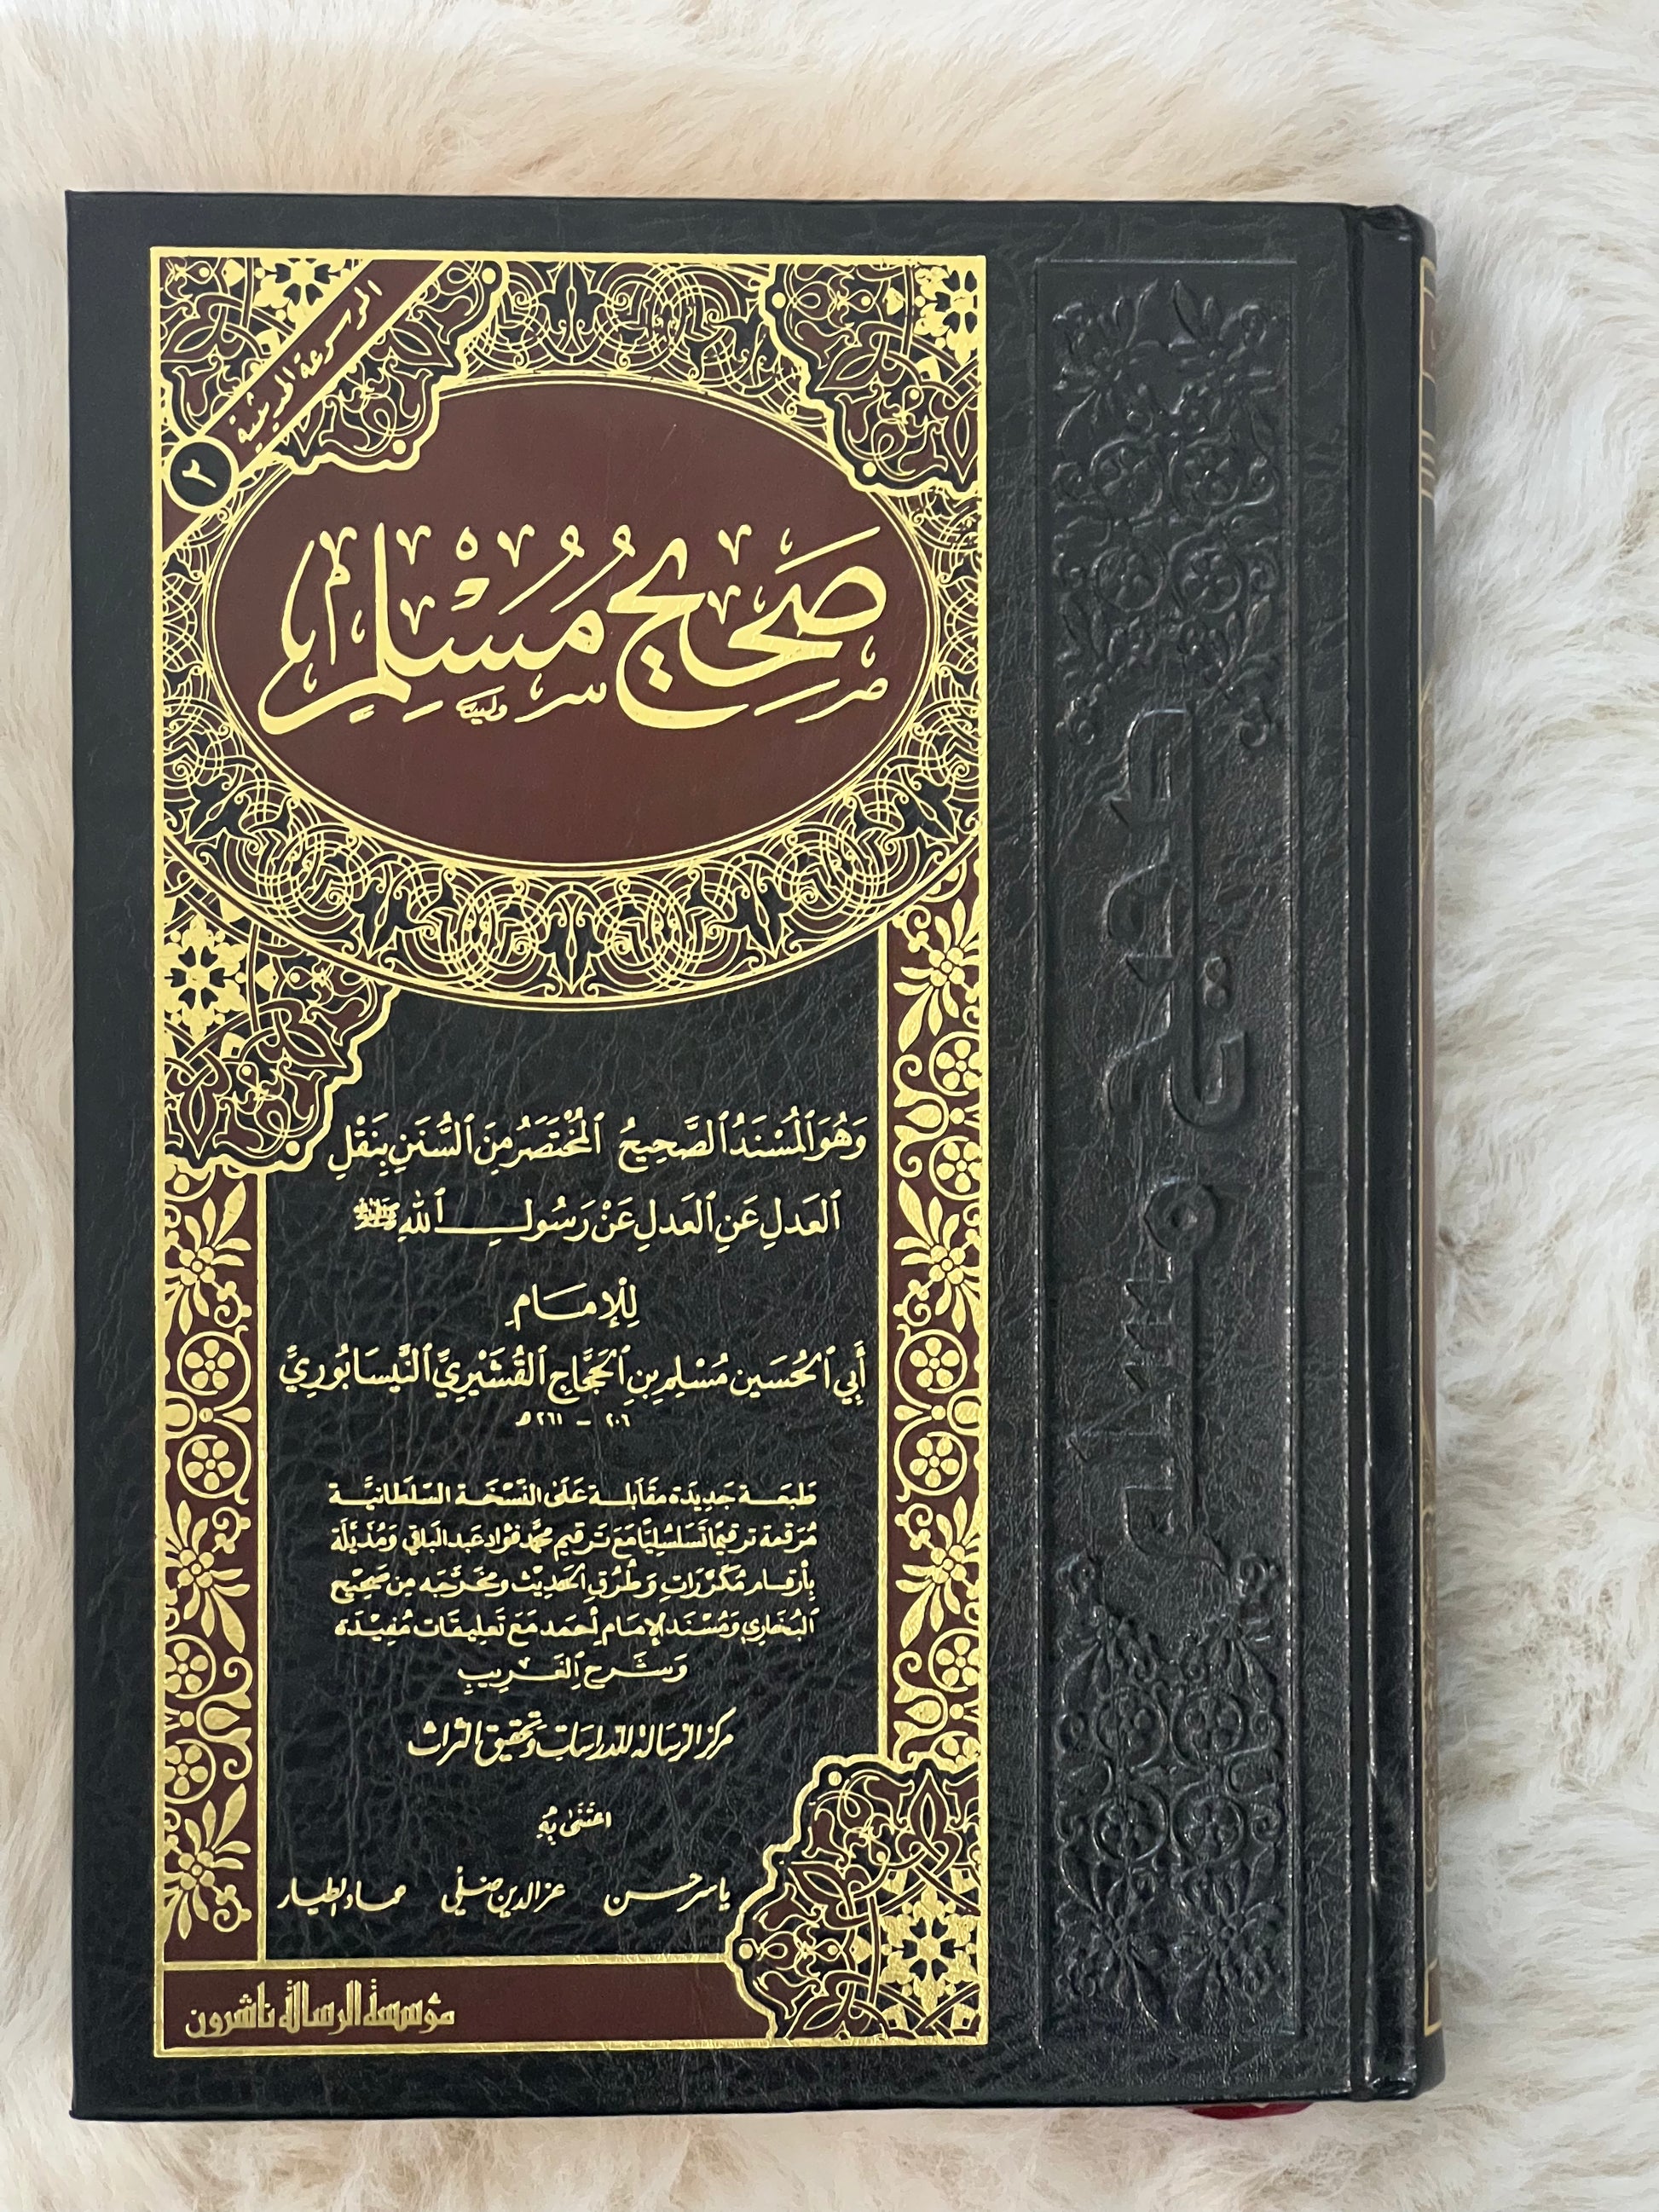 الموسوعة الحديثية
٢
صَحِيحُ مُسْلِمٍ
وَهُوَ المُسْنَدُ الصَّحِيحُ المُخْتَصَرُ مِنَ السُّنَنِ بِنَقْلِ
العَدلِ عَنِ العَدلِ عَنْ رَسُولِ اللهِ ﷺ
لِلْإِمَامِ
أَبِي الحُسَين مُسْلِم بنِ الحَجَّاجِ القُشَيْرِيِّ النَّيسَابُورِيِّ
٢٠٦ - ٢٦١ هـ
طَبعَة جَدِيدَة مقَابَلة عَلَى النّسْخَة السّلطَانيَّة
مُرَقمة ترقيمًا تَسَلسُليًا مَعَ تَرقيم محمَّد فؤاد عَبد البَاقي وَمُذَيَّلَة
بِأرقام مُكَرَّرَاتِ وَطُرُقِ الحَدِيْث ومخَرَّجَه مِن صَحِيْح
البُخَارِي وَمُسْنَد الإمَام أحمَد مَعَ تَعلِيقَات مُفِيْدَة
وَشَرحِ الغَرِيبِ
مركز الرسالة للدراسات وتحقيق التراث
اعتَنَى بِهِ
ياسر حسن عز الدين ضلي عماد الطيار
مؤسسة الرسالة ناشرون
صحيح مسلم